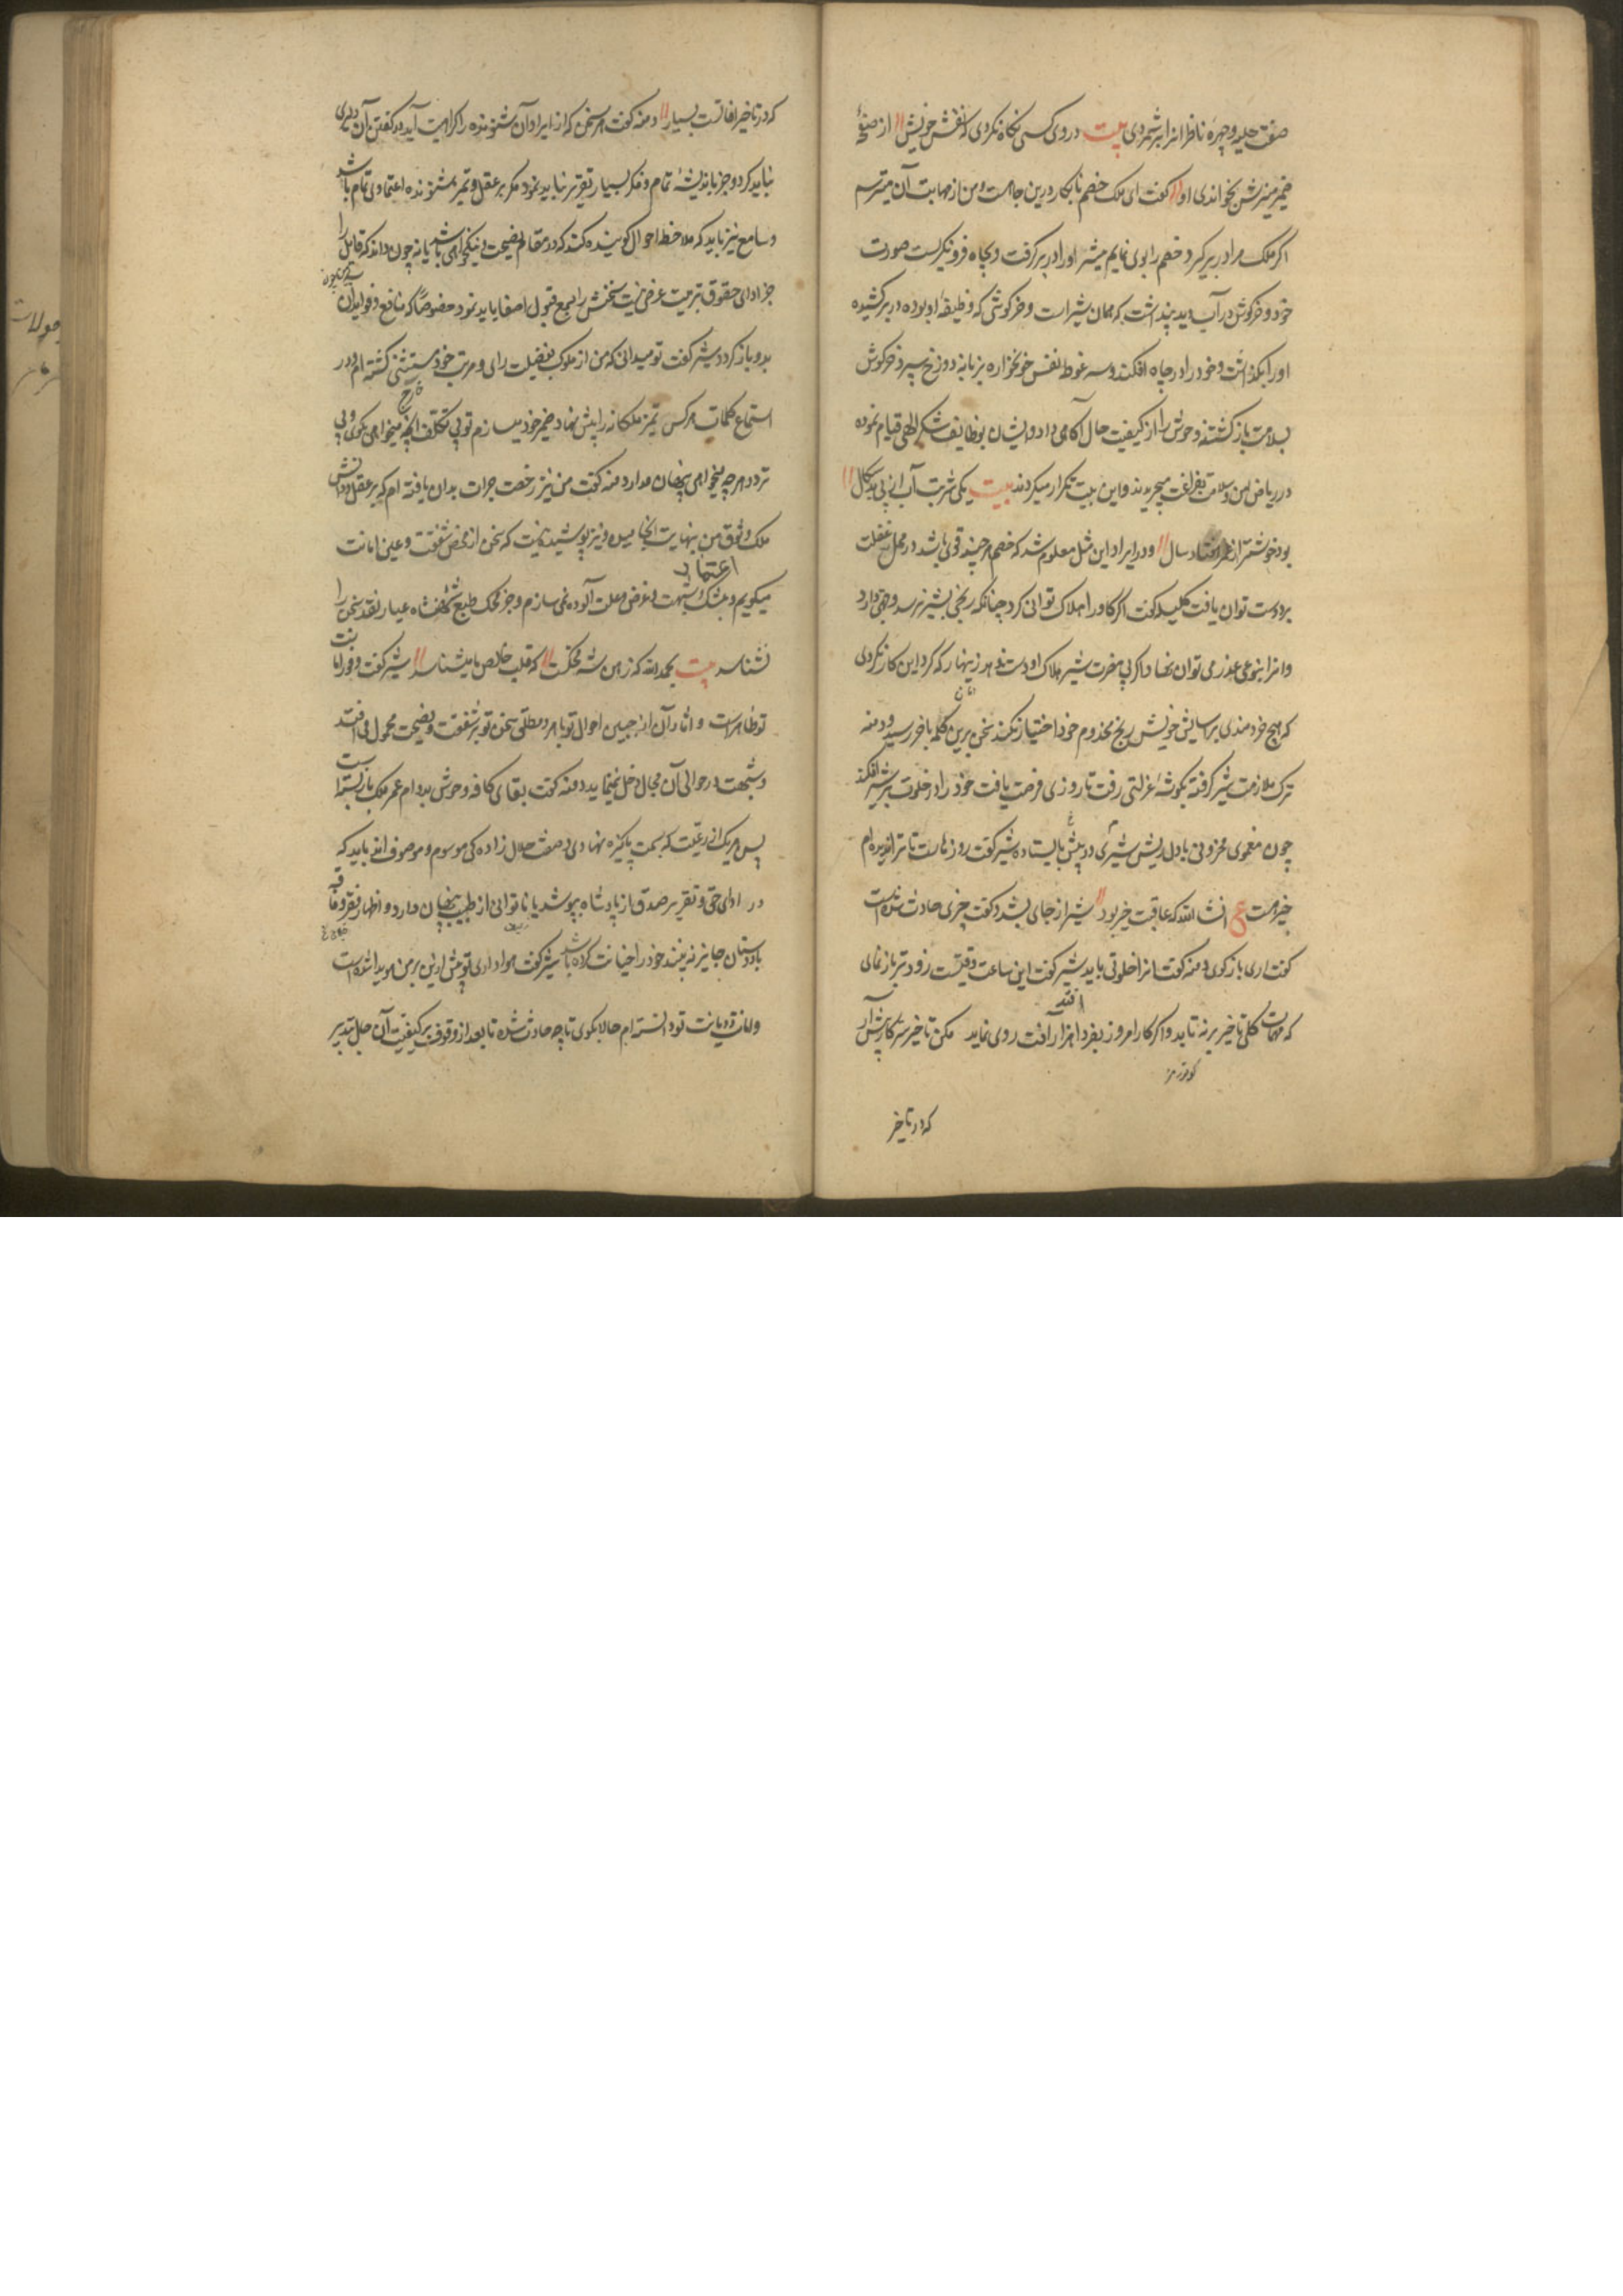 صفت حلیه و چهره ناظر انرا بر شمردی بیت در روی کسی نگاه نکردی که نقش خویش از صفحهٔ
ضمیر منیرش نخواندی او گفت ای ملک خصم نابکار درین چاهست و من از مهابت آن میترسم
اگر ملک مرا در بر گیرد خصم را بوی نمایم شیر او را در بر گرفت و بچاه فرو نگریست صورت
خود و خرگوش در آب دید پنداشت که همان شیر است و خرگوشی که وظیفهٔ او بوده در بر کشیده
او را بگذاشت و خود را در چاه افکند و سه غوطه نفس خونخواره بزبانیه دوزخ سپرد خرگوش
بسلامت بازگشته وحوش را از کیفیت حال آگاهی داد و ایشان بوظایف شکر الهی قیام نموده
در ریاض امن و سلامت بفراغت میچریدند و این بیت تکرار میکردند بیت یکی شربت آب از پی بدسگال
بود خوشتر از عمر هفتاد سال و در ایراد این مثل معلوم شد که خصم هر چند قوی باشد در محل غفلت
برو دست توان یافت کلیله گفت اگر گاو را هلاک توانی کرد چنانکه رنجی بشیر نرسد وجهی دارد
و انرا بنوعی عذر می توان نهاد و اگر بی مضرت شیر هلاک او دست ندهد زینهار که گرد این کار نگردی
که هیچ خردمندی برای آسایش خویش رنج مخدوم خود اختیار نکند سخن برین کلمه باخر رسید و دمنه
ترک ملازمت شیر گرفته بگوشهٔ عزلتی رفت تا روزی فرصت یافت خود را در خلوت بر شیر افکند
چون مغموی محزونی با دل ریش سری در پیش بایستاد شیر گفت روزهاست تا ترا ندیده ام
خیر هست ع انشا الله که عاقبت خیر بود شیر از جای بشد و گفت چیزی حادث شده است
گفت اری باز گوی دمنه گفت انرا خلوتی باید شیر گفت این ساعت وقتست زودتر باز نمای
که مهمات کلی تاخیر بر نه تابد و اگر کار امروز بفردا افتد هزار آفت روی نماید مکن تاخیر سر کار پیش آر
که در تاخیر
که در تاخیر افاتست بسیار دمنه گفت هر سخن که از ایراد آن شنونده را کراهیت آید در گفتن آن دلیری
نباید کرد و جز باندیشهٔ تمام و فکر بسیار تقریر نباید نمود مگر بر عقل و تمیز شنونده اعتمادی تمام باشد
و سامع نیز باید که ملاحظهٔ احوال گوینده کند که در مقام نصیحت و نیکخواهی باشد یا نه چون داند که قایل را
جز ادای حقوق تربیت غرضی نیست سخنش را بسمع قبول اصغا باید نمود خصوصا که منافع و فواید آن
بدو باز گردد شیر گفت تو میدانی که من از ملوک بفضیلت رای و مزیت خرد مستثنی گشته ام و در
استماع کلمات هر کس تمیز ملکانه را پیش نهاد ضمیر خود میسازم تو بی تکلف انچه میخواهی بگوی و بی
تردد هر چه میخواهی پنهان مدار دمنه گفت من نیز رخصت جرات بدان یافته ام که بر عقل و دانش
ملک وثوق من بنهایت انجامیده و نیز پوشیده نیست که سخن از محض شفقت و عین امانت
اعتماد
میگویم و بشک و شبهت و غرض و علت آلوده نمی سازم و جز محک طبع شهنشاه عیار نقد سخن را
نشناسد بیت بحمد الله که ذهن شه محکست که قلب خالص ما میشناسد شیر گفت وفور امانت
تو ظاهر است و اثار آن از جبین احوال تو باهر و مطلقی سخن تو بر شفقت و نصیحت محمول می افتد
و شبهت در حوالی آن مجال دخل نمینماید دمنه گفت بقای کافه وحوش بدوام عمر ملک باز بسته است
پس هر یک از رعیت که بسمت پاکیزه نهادی و صفت حلال زادگی موسوم و موصوف اند باید که
در ادای حق و تقریر صدق از پادشاه بپوشد یا ناتوانی از طبیب پنهان دارد و اظهار فقر و فاقه
با دوستان جایز نه بیند خود را خیانت کرده باشد شیر گفت هواداری تو پیش ازین بر من هویدا شده است
و امانت و دیانت تو دانسته ام حالا بگوی تا چه حادث شده تا بعد از وقوف بر کیفیت آن بحل تدبیر